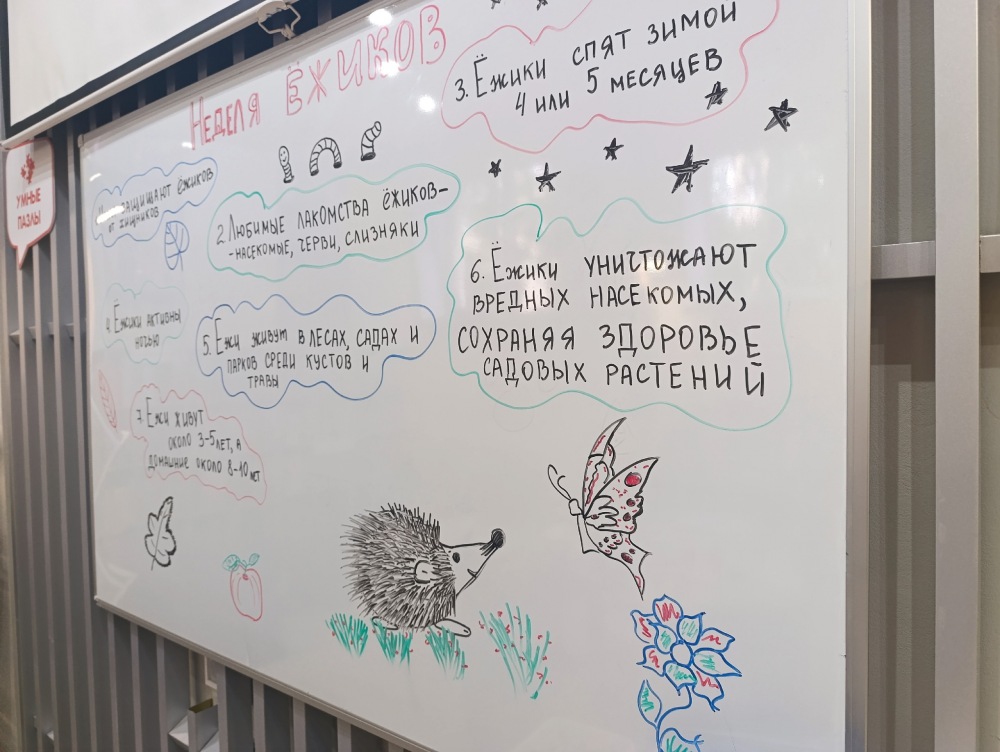 Неделя ЁЖИКОВ
УМНЫЕ
ПАЗЛЫ
ЗАЩИЩАЮТ ЁЖИКОВ
ОТ ХИЩНИКОВ
2. ЛЮБИМЫЕ ЛАКОМСТВА ЁЖИКОВ-
-НАСЕКОМЫЕ, ЧЕРВИ, СЛИЗНЯКИ
3. ЁЖИКИ СПЯТ ЗИМОЙ
4 ИЛИ 5 МЕСЯЦЕВ
4. ЁЖИКИ АКТИВНЫ
НОЧЬЮ
5. ЕЖИ ЖИВУТ В ЛЕСАХ, САДАХ И
ПАРКОВ СРЕДИ КУСТОВ И
ТРАВЫ
6. ЁЖИКИ УНИЧТОЖАЮТ
ВРЕДНЫХ НАСЕКОМЫХ,
СОХРАНЯЯ ЗДОРОВЬЕ
САДОВЫХ РАСТЕНИЙ
7. ЕЖИ ЖИВУТ
ОКОЛО 3-5 ЛЕТ, А
ДОМАШНИЕ ОКОЛО 8-10 ЛЕТ